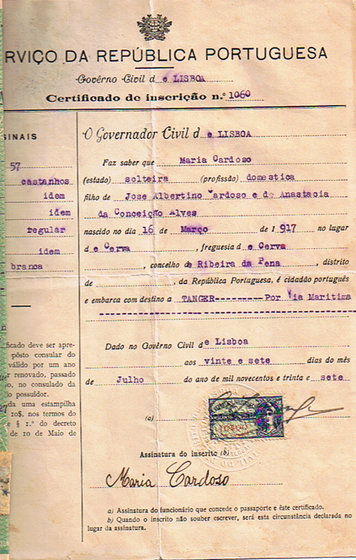 RVIÇO DA REPÚBLICA PORTUGUESA
Govêrno Civil de LISBOA
Certificado de inscrição n.º 1060
SINAIS
57
castanhos
idem
idem
regular
idem
branca
ficado deve ser apre-
epósito consular do
válido por um ano
r renovado, passado
no, no consulado da
o possuidor.
da uma estampilha
10$, nos termos do
e § 1.º do decreto
de 10 de Maio de
O Governador Civil de LISBOA
Faz saber que Maria Cardoso
(estado) solteira (profissão) domestica
filho de Jose Albertino Cardoso e de Anastacia
da Conceição Alves
nascido no dia 16 de Março de 1917 no lugar
de Cerva, freguesia de Cerva
, concelho de Ribeira da Pena, distrito
de , da República Portuguesa, é cidadão português
e embarca com destino a TANGER----------Por Via Maritima
Dado no Govêrno Civil de Lisboa
aos vinte e sete dias do mês
de Julho do ano de mil novecentos e trinta e sete
(a)
Assinatura do inscrito (b)
Maria Cardoso
a) Assinatura do funcionário que concede o passaporte e êste certificado.
b) Quando o inscrito não souber escrever, será esta circunstância declarada no
lugar da assinatura.